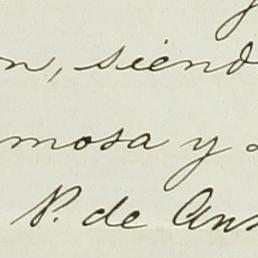 n, siend
mosa y
P. de Ans